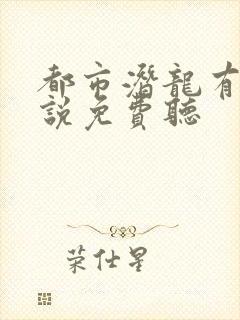 都市潛龍有
說免費聽
荣仕星